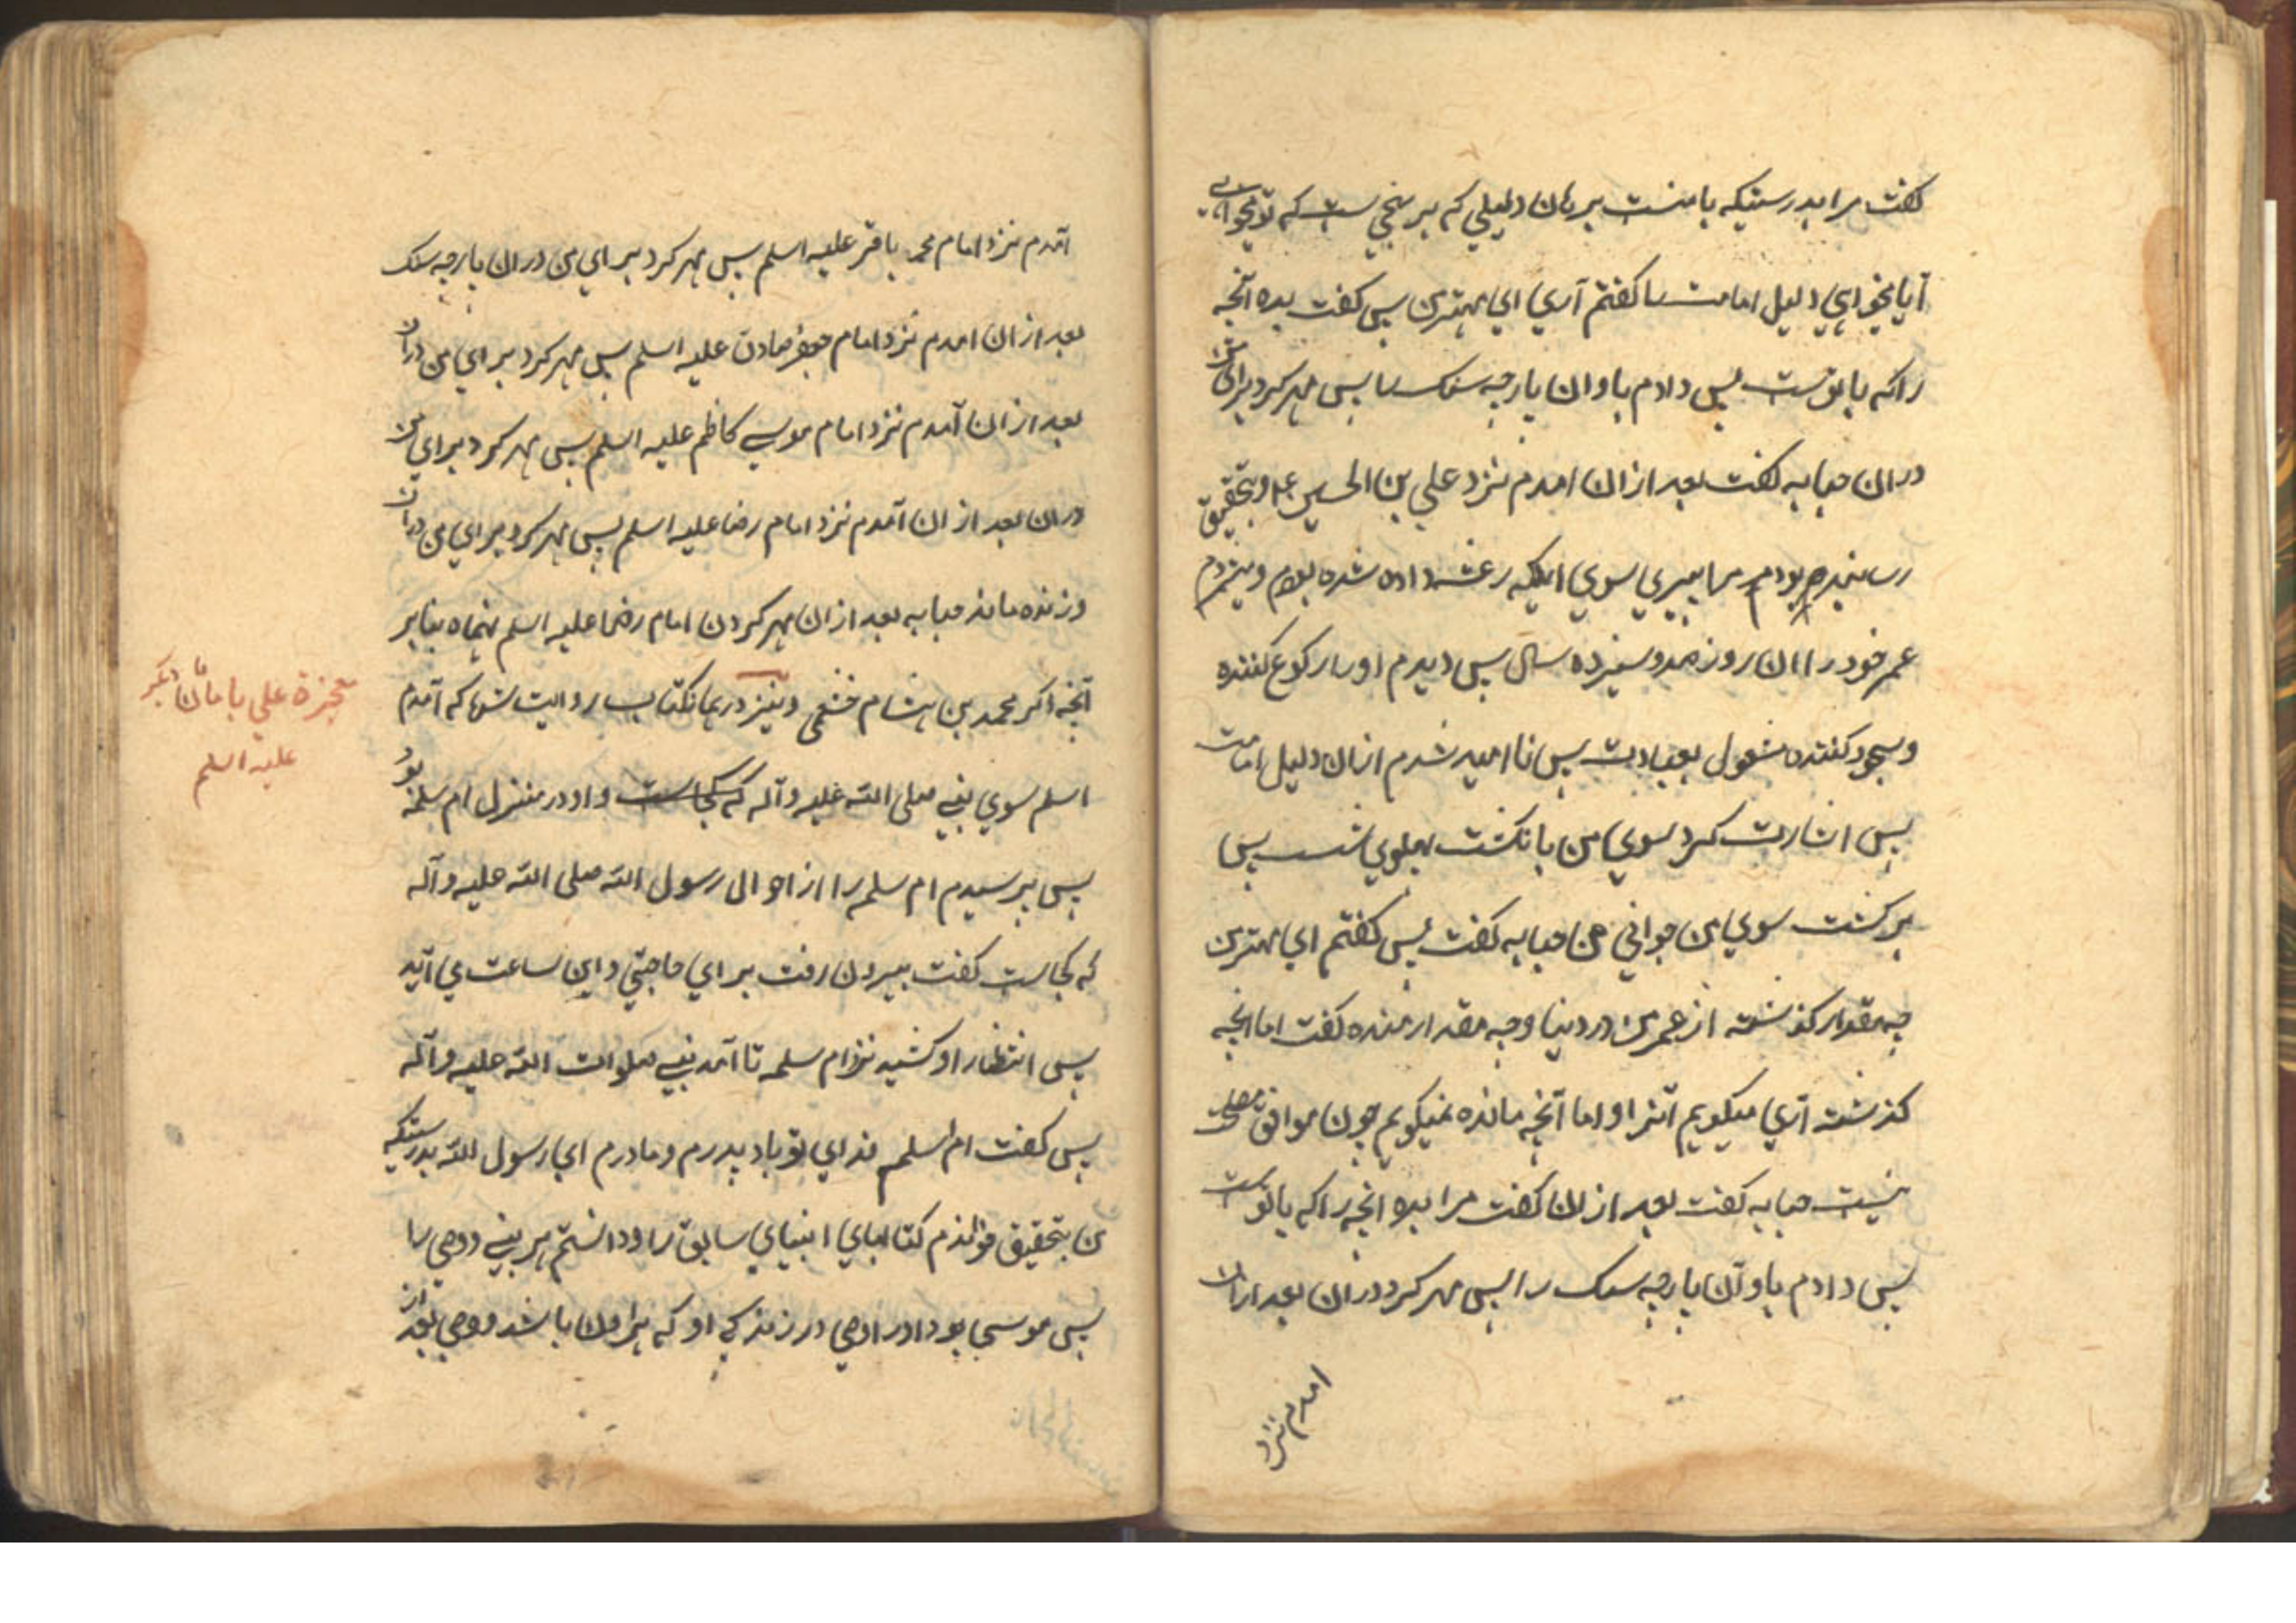 گفت مرا بدرستیکه با منست برهان دلیلی که بر نحیی ست که تو میخواهی
آیا میخواهی دلیل امامت را گفتم آری ای مهترمن پس گفت بده آنچه
را که با توست پس دادم باو ان پارچه سنک را پس مهر کرد برای من
در ان حبابه گفت بعد از ان امدم نزد علی بن الحسین ع و بتحقیق
رسانیده بودم مرا پیری سوی اینکه رعشه داده شده بودم و میشمردم
عمر خود را ان روز صد و سیزده سال پس دیدم او را رکوع کننده
و سجود کننده مشغول بعبادت پس نا امید شدم از ان دلیل امامت
پس اشارت کرد سوی من بانکشت پهلوی شست پس
برکشت سوی من جوانی من حبابه گفت پس گفتم ای مهترمن
چه مقدار گذشته از عمر من در دنیا و چه مقدار منده گفت اما انچه
گذشته آری میگویم آنرا و اما آنچه مانده نمیگویم چون موافق مصلحت
نیست حبابه گفت بعد از ان گفت مرا بده انچه را که با توست
پس دادم باو آن پارچه سنک را پس مهر کرد در ان بعد از ان
امدم نزد
آمدم نزد امام محمد باقر علیه اسلم پس مهر کرد برای من در ان پارچه سنک
بعد از ان امدم نزد امام جعفر صادق علیه اسلم پس مهر کرد برای من در ان
بعد از ان آمدم نزد امام موسی کاظم علیه اسلم پس مهر کرد برای من
در ان بعد از ان آمدم نزد امام رضا علیه اسلم پس مهر کرد برای من در ان
و زنده ماند حبابه بعد از ان مهر کردن امام رضا علیه اسلم نهماه بنابر
آنچه ذکر محمد بن هشام خثعمی و نیز در همانکتاب روایت که آمدم
اسلم سوی نبی صلی الله علیه و آله که کجاست و او در منزل ام سلمه بود
پس پرسیدم ام سلمه را از احوال رسول الله صلی الله علیه و آله
که کجاست گفت بیرون رفت برای حاجتی و این ساعت می آید
پس انتظار او کشید نزد ام سلمه تا آمد نبی صلوات الله علیه و آله
پس گفت ام اسلم فدای تو باد پدرم و مادرم ای رسول الله بدرستیکه
من بتحقیق خواندم کتابهای انبیای سابق را و دانستم هر نبی و وصی را
پس موسی بود او را وصی در زندکی او که هرون باشد و وصی بعد از
معجزة علی با امامان دیگر
علیه اسلم